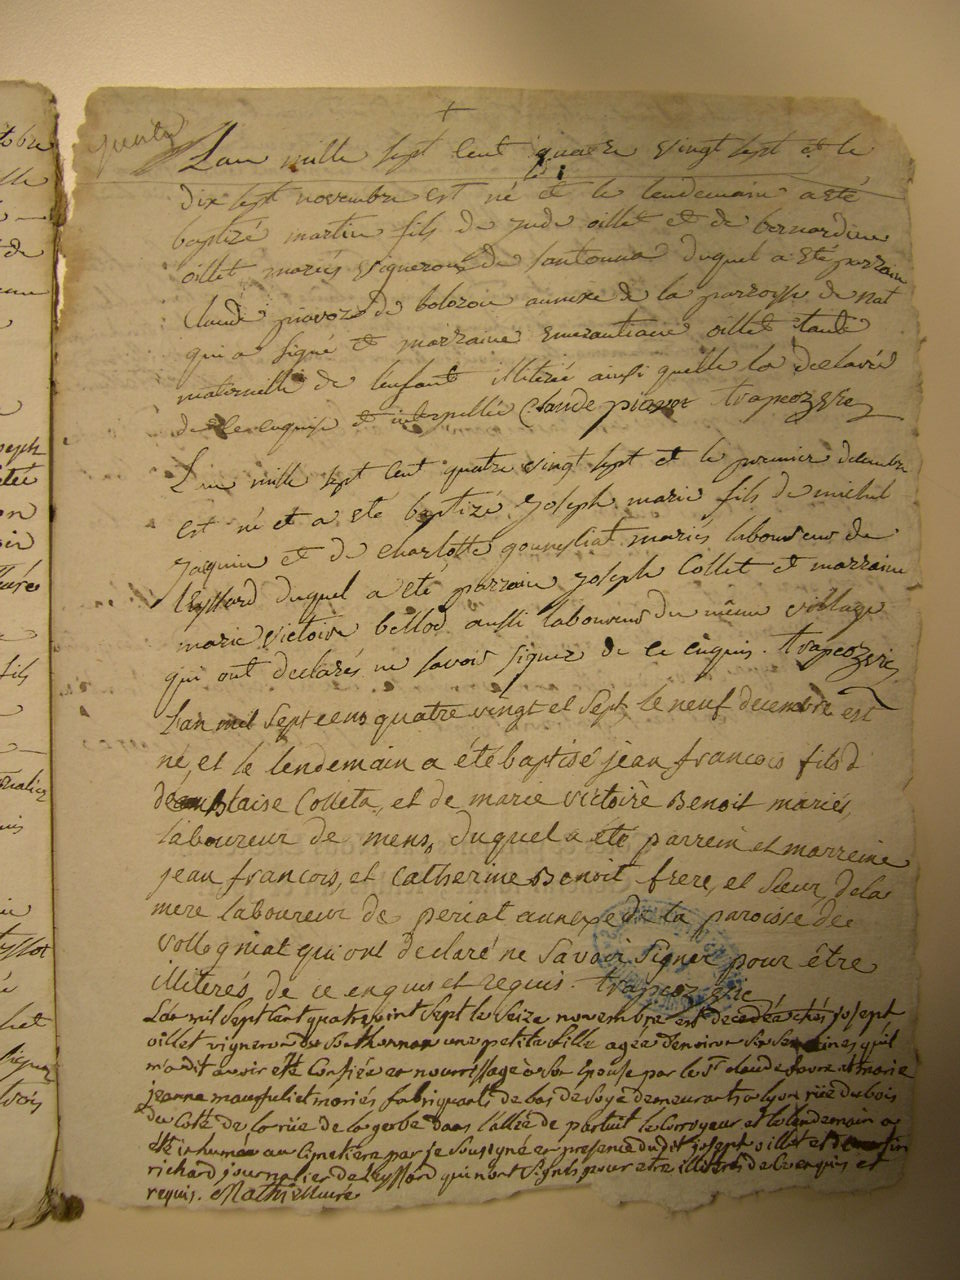 Lan mille sept cent quatre vingt sept et le
dix sept novembre est né et le lendemain a eté
baptizé martin fils de jude oillet et de bernardine
oillet mariés vignerons de santonna duquel a eté parrain
Claude pravoz de bolozon annexe de la parroisse de nat
qui a signé et marraine emerantiane oillet tante
maternelle de lenfant illitirée ainsi quelle la declaré
de ce enquise et interpellée Claude trapcozere
Lan mille sept cent quatre vingt sept et le premier decembre
est né et a eté baptizé joseph marie fils de michel
jaquin et de charlotte mariés laboureurs de
leyssard duquel a eté parrain joseph Collet et marraine
marie victoire bellod aussi laboureurs du même village
qui ont declarés ne savoir signer de ce enquis. trapcozere
Lan mil sept cens quatre vingt et sept le neuf decembre est
né, et le lendemain a été baptisé jean francois fils d
de blaise Colleta, et de marie victoire Benoit mariés,
laboureur de mens, duquel a été parrein et marreine
jean francois, et Catherine Benoit frere, et sœur, de la
mere laboureur de periat annexe de la paroisse de
vollogniat qui ont declaré ne savoir signer pour être
illiterés de ce enquis et requis. trapcozere
Lan mil sept cent quatrevint sept le seize novembre est decedé chés joseph
oillet vigneron de une petite fille agée denviron six semaines, quil
m'a dit avoir eté confiée en nourrissage à son Epouse par le Sr claude favre et marie
jeanne mariés fabriquants de bas de soye demeurants a lyon rüe du bois
du coté de la rüe de la gerbe dans l'allée de et le lendemain a
été inhumée au cimetiere par je soussigné en presence dudit joseph oillet et de
richard journalier de leyssard qui nont signés pour etre illiterés de ce enquis et
requis.